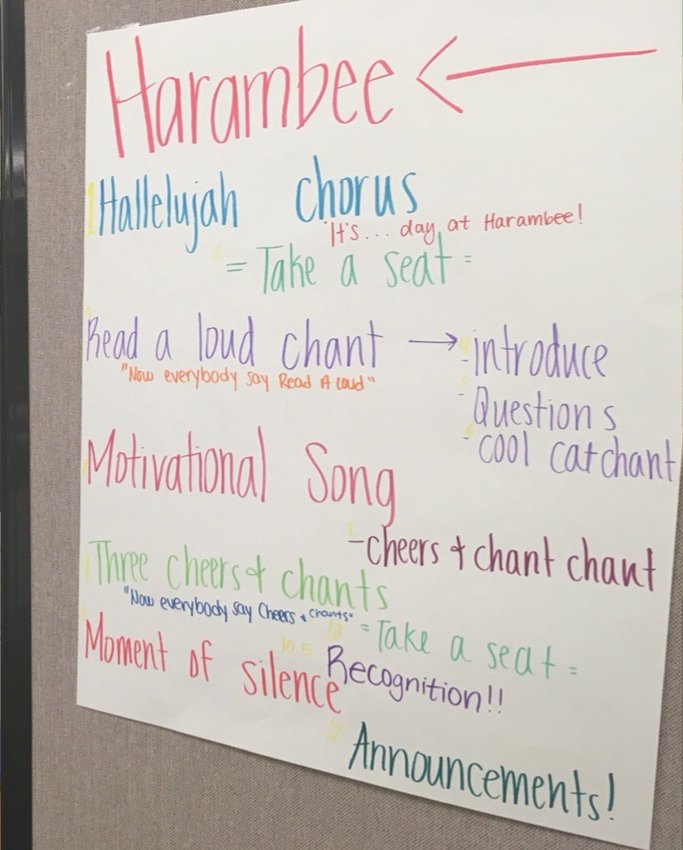 Harambee
1 Hallelujah chorus
It's... day at Harambee!
= Take a seat =
Read a loud chant → - introduce
"Now everybody say Read A Loud"
- Questions
- cool cat chant
Motivational Song
- cheers + chant chant
Three cheers + chants
"Now everybody say Cheers + chants"
= Take a seat =
Moment of silence
10.5 Recognition!!
Announcements!